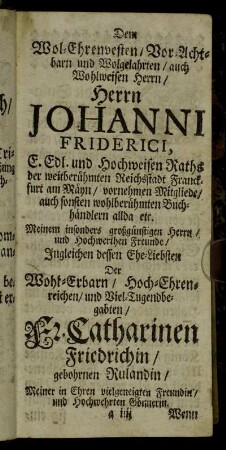 Dem
Wol-Ehrenvesten / Vor-Acht-
barn und Wolgelahrten / auch
Wohlweisen Herrn /
Herrn
JOHANNI
FRIDERICI,
E. Edl. und Hochweisen Raths
der weitberühmten Reichsstadt Franck-
furt am Mäyn / vornehmen Mitgliede /
auch sonsten wohlberühmten Buch-
händlern allda etc.
Meinem insonders großgünstigen Herrn /
und Hochwerthen Freunde /
Ingleichen dessen Ehe-Liebsten
Der
Wohl-Erbarn / Hoch-Ehren-
reichen / und Viel-Tugendbe-
gabten /
Fr. Catharinen
Friedrichin /
gebohrnen Rulandin /
Meiner in Ehren vielgeneigten Freundin /
und Hochwehrten Gönnerin.
a iiij Wenn